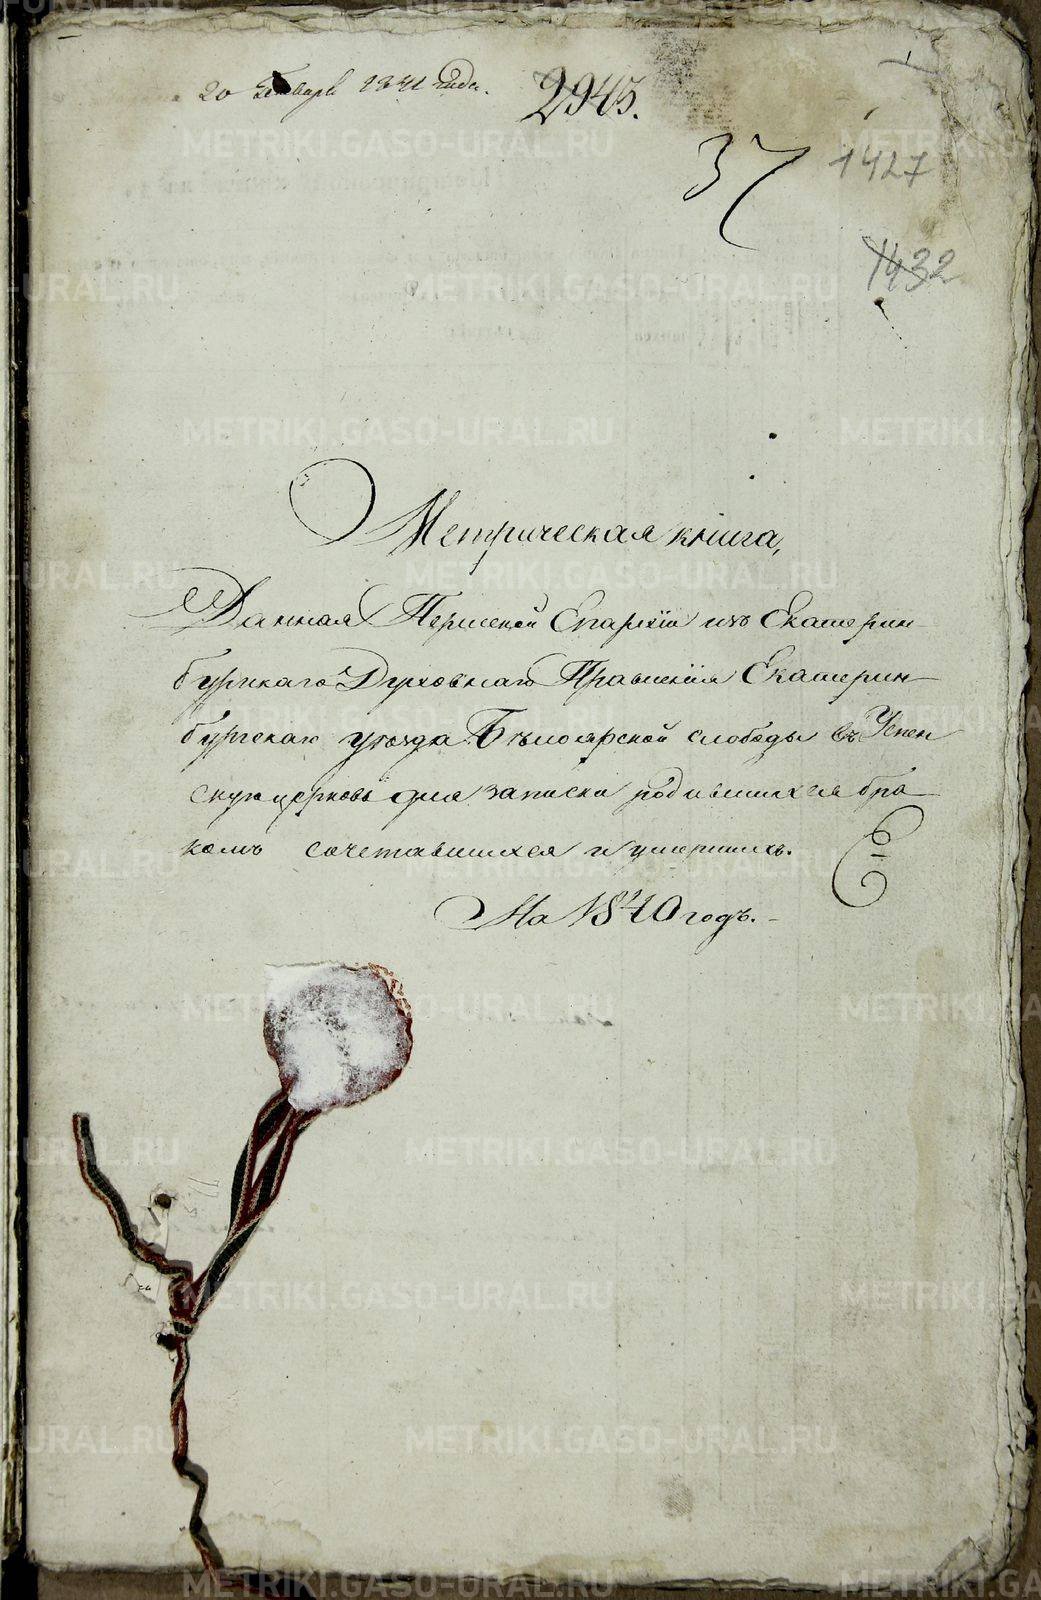 20 Генваря 1841 года.
2945.
37
1427
1432
Метрическая книга,
Данная Пермской Епархіи изъ Екатерин
бурскаго Духовнаго Правленія Екатерин
бургскаго уѣзда Бѣлоярской слободы въ Успен
скую церковь для записки родившихся бра
комъ сочетавшихся и умершихъ.
На 1840 годъ.
METRIKI.GASO-URAL.RU